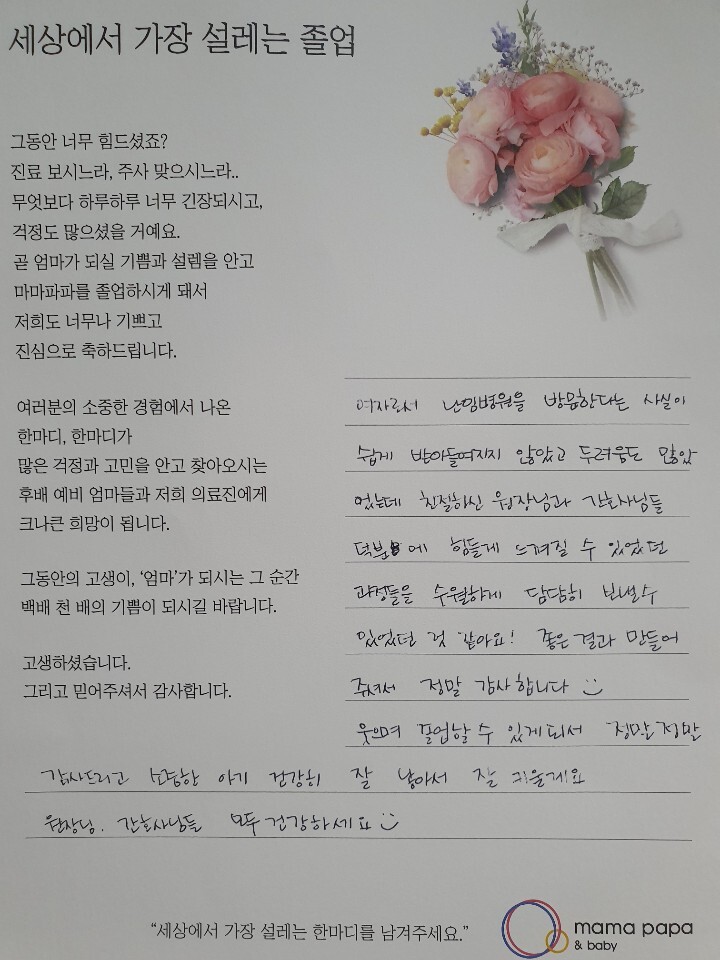 세상에서 가장 설레는 졸업
그동안 너무 힘드셨죠?
진료 보시느라, 주사 맞으시느라..
무엇보다 하루하루 너무 긴장되시고,
걱정도 많으셨을 거예요.
곧 엄마가 되실 기쁨과 설렘을 안고
마마파파를 졸업하시게 돼서
저희도 너무나 기쁘고
진심으로 축하드립니다.
여러분의 소중한 경험에서 나온
한마디, 한마디가
많은 걱정과 고민을 안고 찾아오시는
후배 예비 엄마들과 저희 의료진에게
크나큰 희망이 됩니다.
그동안의 고생이, '엄마'가 되시는 그 순간
백배 천 배의 기쁨이 되시길 바랍니다.
고생하셨습니다.
그리고 믿어주셔서 감사합니다.
여자로서 난임병원을 방문한다는 사실이
쉽게 받아들여지지 않았고 두려움도 많았
었는데 친절하신 원장님과 간호사님들
덕분에 힘들게 느껴질 수 있었던
과정들을 수월하게 담담히 보낼수
있었던 것 같아요! 좋은결과 만들어
주셔서 정말 감사합니다
웃으며 졸업할 수 있게되서 정말정말
감사드리고 소중한 아기 건강히 잘 낳아서 잘 키울게요
원장님. 간호사님들 모두 건강하세요
"세상에서 가장 설레는 한마디를 남겨주세요."
mama papa
& baby